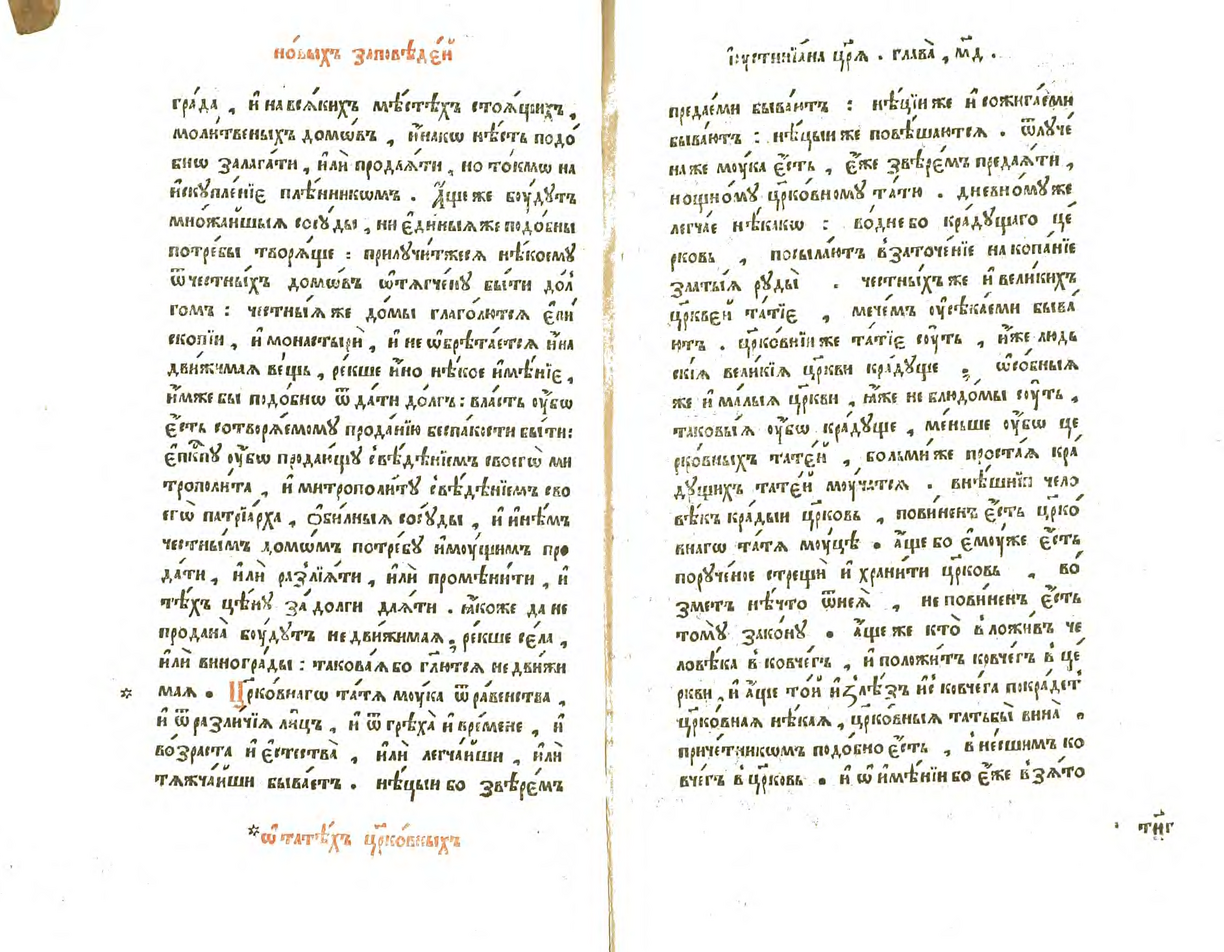 но́выхъ заповѣде́й
гра́да , и҆ на всѧ́кихъ мѣ́стѣхъ стоѧ́щихъ ,
моли́твеныхъ домѡ́въ , и҆на́кѡ нѣ́сть подо́
бнѡ залага́ти , и҆лѝ продаѧ́ти , но то́кмѡ на
и҆скупле́нїе плѣ́нникѡмъ . А҆́ще же бꙋ́дꙋтъ
мно́жайшыѧ сосꙋ́ды , ни є҆ди́ныѧ же подо́бны
потре́бы творѧ́ще : прилꙋчи́тжесѧ нѣ́коемꙋ
ѿ честны́хъ домѡ́въ ѡ҆тѧгче́нꙋ бы́ти до́л
гомъ : честны́ѧ же до́мы глаго́лютсѧ є҆пи
ско́пїи , и҆ монасты́рѝ , и҆ не ѡ҆брѣ́таетсѧ и҆́на
дви́жимаѧ ве́щь , ре́кше и҆́но нѣ́кое и҆мѣ́нїе ,
и҆́мже бы подо́бнѡ ѿ да́ти до́лгъ : вла́сть ᲂу҆́бѡ
є҆́сть сотворѧ́емомꙋ прода́нїю беспа́кости бы́ти :
є҆пⷭ҇кпꙋ ᲂу҆́бѡ продаю́щꙋ свѣ́дѣнїемъ своегѡ̀ ми
трополи́та , и҆ митрополи́тꙋ свѣ́дѣнїемъ сво
егѡ̀ патрїа́рха , ѻ҆би́лныѧ сосꙋ́ды , и҆ и҆нѣ́мъ
че́стнымъ домѡ́мъ потре́бꙋ и҆мꙋ́щимъ про
да́ти , и҆лѝ разлїѧ́ти , и҆лѝ промѣни́ти , и҆
тѣ́хъ цѣ́нꙋ за́ долги даѧ́ти . ꙗ҆́коже да не
продана̀ бꙋ́дꙋтъ недви́жимаѧ , ре́кше се́ла ,
и҆лѝ виногра́ды : такова́ѧ бо гл҃ютсѧ недви́жи
маѧ . Цр҃ко́внагѡ та́тѧ мꙋ́ка ѿ ра́венства ,
и҆ ѿ разли́чїѧ ли́цъ , и҆ ѿ грѣ́ха и҆ вре́мене , и҆
во́зраста и҆ є҆стества̀ , и҆лѝ легча́йши , и҆лѝ
тѧжча́йши быва́етъ . нѣ́цыи бо звѣре́мъ
*ѡ҆ татѣ́хъ цр҃ко́вныхъ
І҆ꙋстинїа́на цр҃ѧ̀ . глава̀ , м҃д .
предае́ми быва́ютъ : нѣ́цїи же и҆ сожига́еми
быва́ютъ : нѣ́цыи же повѣ́шаютсѧ . ѿлꙋче́
на же мꙋ́ка є҆́сть , є҆́же звѣре́мъ предаѧ́ти ,
нощно́мꙋ цр҃ко́вномꙋ та́тю . дневно́мꙋ же
легча́е нѣ́какѡ : во дне бо кра́дꙋщаго це́
рковь , посыла́ютъ в заточе́нїе на копа́нїе
златы́ѧ рꙋды̀ . честны́хъ же и҆ вели́кихъ
цр҃кве́й та́тїе , мече́мъ ᲂу҆сѣка́еми быва́
ютъ . цр҃ко́внїи же та́тїе сꙋ́ть , и҆̀же людь
скі́ѧ вели́кїѧ цр҃кви кра́дꙋще , ѡ҆со́бныѧ
же и҆ ма́лыѧ цр҃кви , ꙗ҆́же не блюдо́мы сꙋ́ть ,
таковы́ѧ ᲂу҆́бѡ кра́дꙋще , ме́ньше ᲂу҆́бѡ це
рко́вныхъ тате́й , бо́льми же проста́ѧ кра́
дꙋщихъ тате́й мꙋ́чатсѧ . внѣ́шнїи чело
вѣ́къ кра́дыи цр҃ковь , пови́ненъ є҆́сть цр҃ко́
внагѡ та́тѧ мꙋ́цѣ . а҆́ще бо є҆мꙋ́же є҆́сть
порꙋче́ное стрещѝ и҆ храни́ти цр҃ковь , во́
зметъ нѣ́что ѿ неѧ̀ , не пови́ненъ є҆́сть
томꙋ̀ зако́нꙋ . а҆́ще же кто̀ вложи́въ че
лове́ка в ковче́гъ , и҆ положи́тъ ковче́гъ в це́
ркви , и҆ а҆́ще то́й и҆злѣ́зъ и҆с ковче́га покра́детъ
цр҃ко́внаѧ нѣ́каѧ , цр҃ко́вныѧ татьбы̀ вина̀ .
приче́тникѡмъ подо́бно є҆́сть , внесшимъ ко
вче́гъ в цр҃ковь . и҆ ѡ҆ и҆мѣ́нїи бо є҆́же взѧ́то
ти҃г